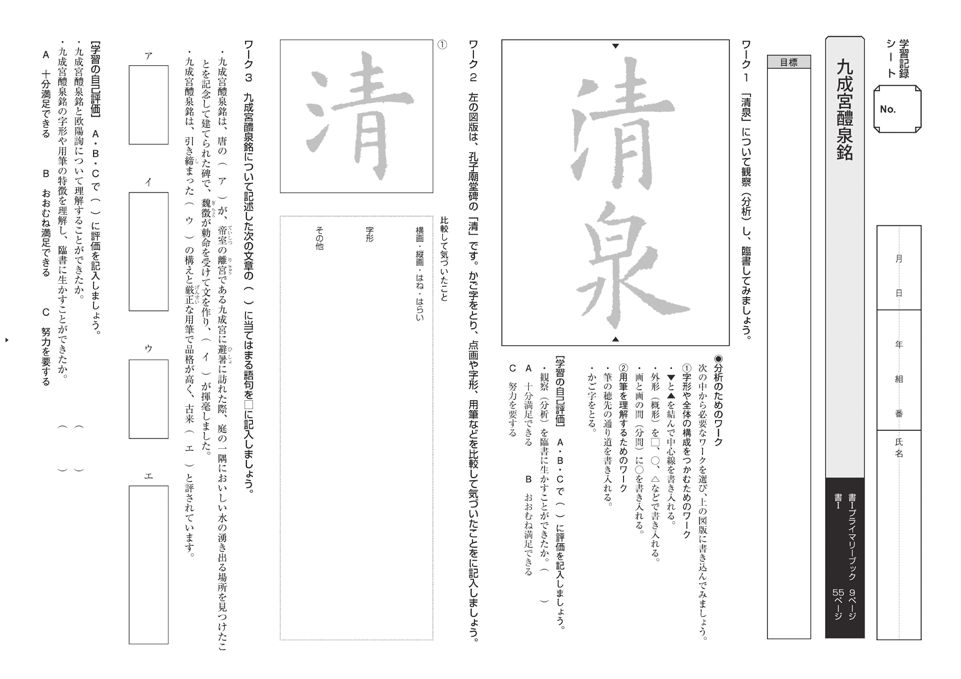 学習記録
シート
No.
月 日
年 組 番
氏名
九成宮醴泉銘
書Ⅰプライマリーブック 9ページ
書Ⅰ 55ページ
目標
ワーク 1 「清泉」について観察（分析）し、臨書してみましょう。
▼
清泉
▲
◉分析のためのワーク
次の中から必要なワークを選び、上の図版に書き込んでみましょう。
①字形や全体の構成をつかむためのワーク
・▼と▲を結んで中心線を書き入れる。
・外形（概形）を□、○、△などで書き入れる。
・画と画の間（分間）に○を書き入れる。
②用筆を理解するためのワーク
・筆の穂先の通り道を書き入れる。
・かご字をとる。
［学習の自己評価］ A・B・Cで（ ）に評価を記入しましょう。
・観察（分析）を臨書に生かすことができたか。（ ）
A 十分満足できる B おおむね満足できる
C 努力を要する
ワーク 2 左の図版は、孔子廟堂碑の「清」です。かご字をとり、点画や字形、用筆などを比較して気づいたことをに記入しましょう。
①
清
比較して気づいたこと
横画・縦画・はね・はらい
字形
その他
ワーク 3 九成宮醴泉銘について記述した次の文章の（ ）に当てはまる語句を□に記入しましょう。
・九成宮醴泉銘は、唐の（ ア ）が、帝室の離宮である九成宮に避暑に訪れた際、庭の一隅においしい水の湧き出る場所を見つけたこ
とを記念して建てられた碑で、魏徴が勅命を受けて文を作り、（ イ ）が揮毫しました。
・九成宮醴泉銘は、引き締まった（ ウ ）の構えと厳正な用筆で品格が高く、古来（ エ ）と評されています。
ア
イ
ウ
エ
［学習の自己評価］ A・B・Cで（ ）に評価を記入しましょう。
・九成宮醴泉銘と欧陽詢について理解することができたか。 （ ）
・九成宮醴泉銘の字形や用筆の特徴を理解し、臨書に生かすことができたか。 （ ）
A 十分満足できる B おおむね満足できる C 努力を要する